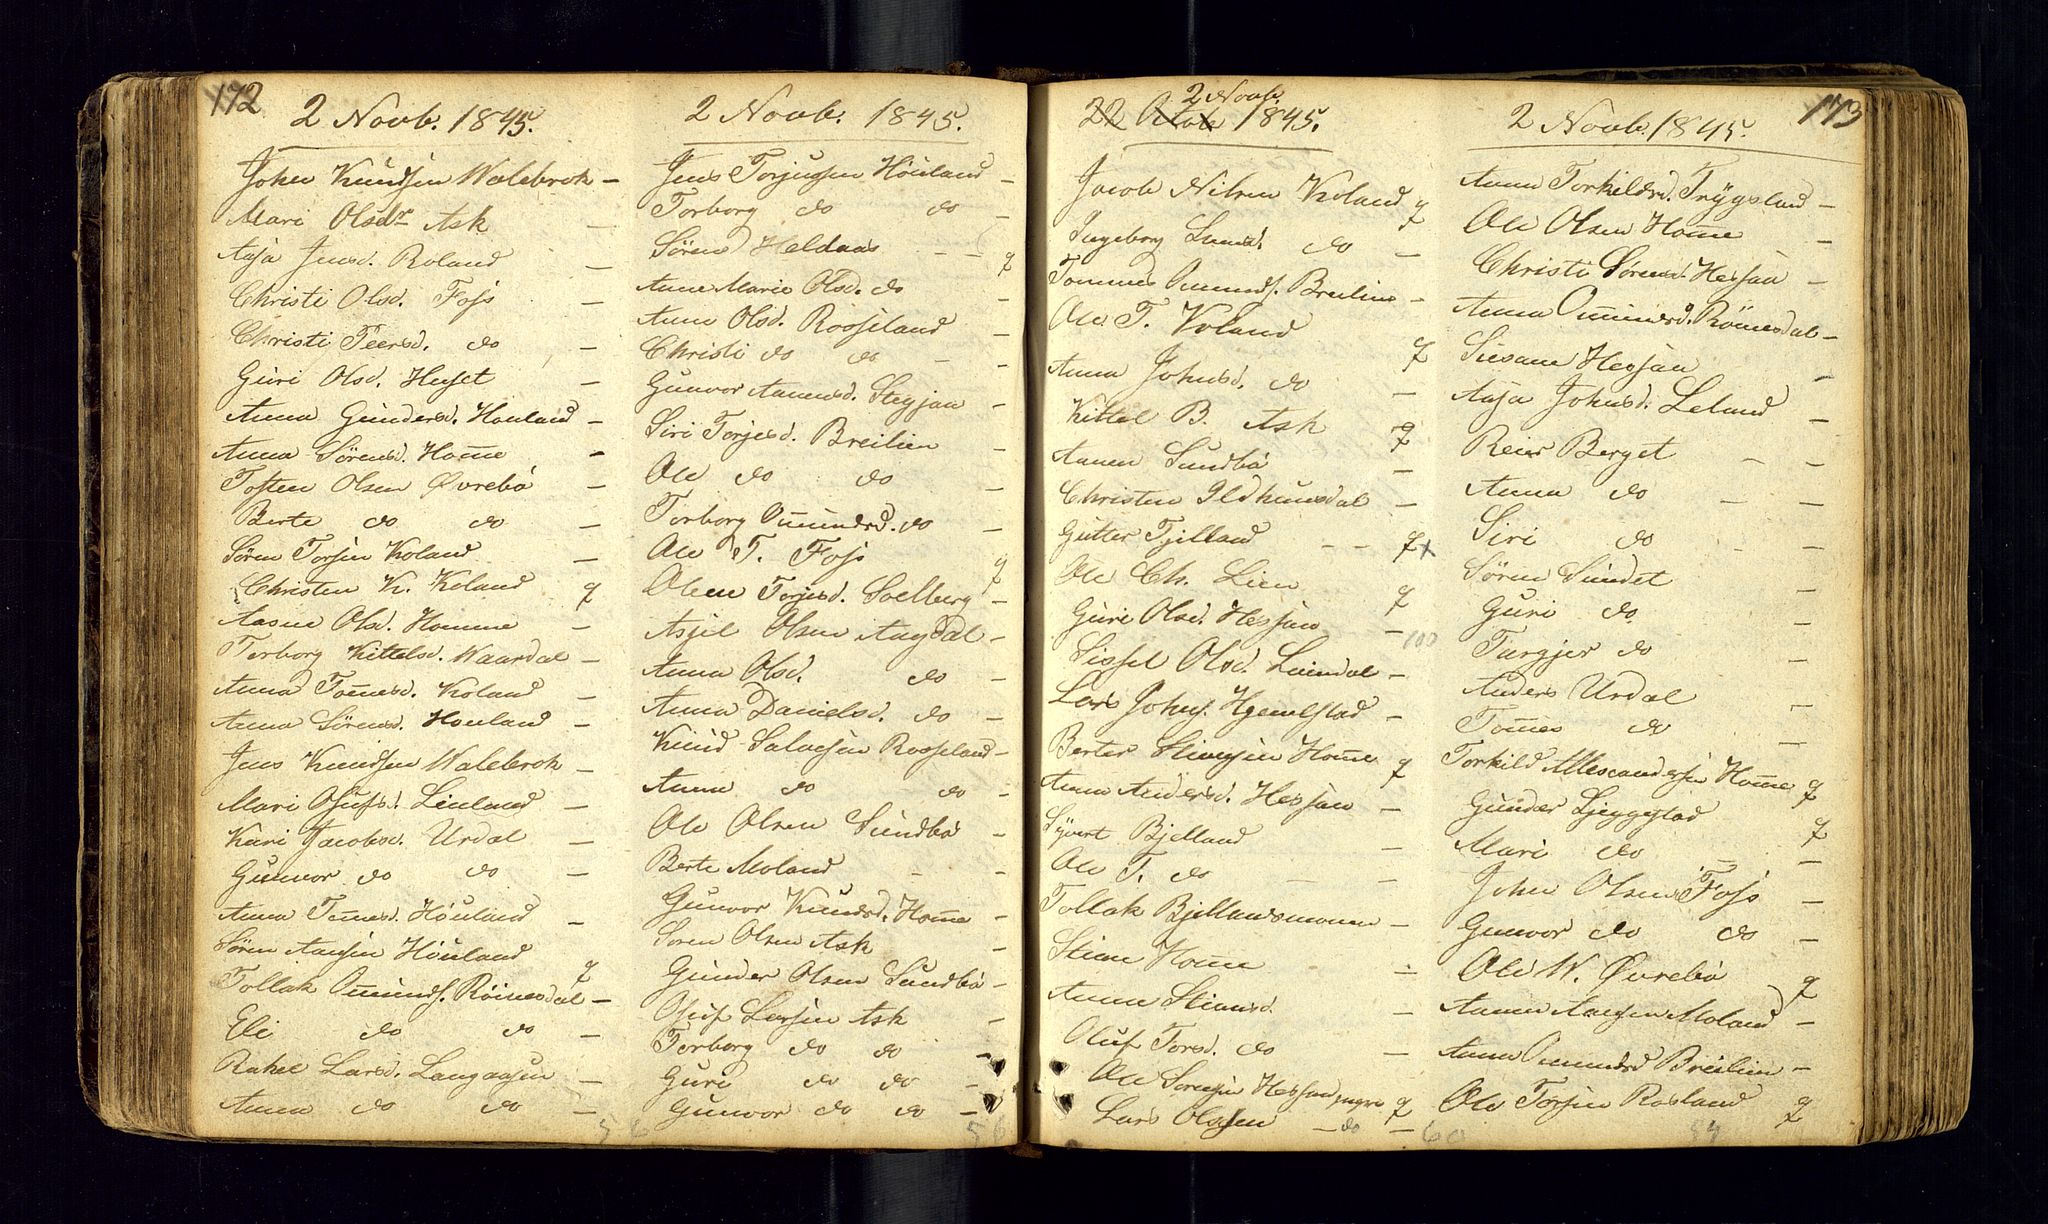 172
2 Novb. 1845.
John Knudsen Walebrok –
Mari Olsdr Ask –
Aasa Jensd. Roland –
Christi Olsd. Foss –
Christi Peersd. do –
Guri Olsd. Huset –
Anna Gundersd. Houland –
Anna Sörensd. Home –
Tosten Olsen Øvrebö –
Berte do do –
Sören Torsen Koland –
Christen K. Koland q
Aasne Olsd. Homme –
Torborg Kittelsd. Waardal –
Anna Tomesd. Koland –
Anna Sörensd. Houland –
Jens Knudsen Walebrok –
Mari Olufsd. Lieland –
Kari Jacobsd. Urdal –
Gunvor do do –
Anna Tomesd. Höuland –
Sören Aansen Höuland q
Tollak Omunds. Röinesdal –
Eli do do –
Rakel Larsd. Langaasen –
Anna do do –
56
2 Novb. 1845.
Jens Torjussen Höuland –
Torborg do do –
Sören Heldaas – – q
Anne Marie Olsd. do –
Anne Olsd. Rosseland –
Christi do do – –
Gunvor Aanensd. Stegjan –
Siri Torjesd. Breilien –
Ole do do –
Torborg Omundsd. do –
Ole T. Foss q
Olene Torjesd. Solberg –
Asjel Olsen Augdal –
Anna Olsd. do –
Anna Danielsd. do –
Knud Salvesen Rosseland –
Anna do do –
Ole Olsen Sundbö –
Berte Moland – –
Gunvor Knudsd. Home –
Soren Olsen Ask –
Gunder Olsen Sundbö –
Oluf Larsen Ask –
Torborg do do –
Guri do do –
Gunvor do do –
56
2 Novb.
22 Octob 1845.
Jacob Nilsen Koland q
Ingeborg Larsd. do –
Tommes Omunds. Breilien –
Ole T. Koland q
Anna Johnsd. do –
Kittel B. Ask q
Aanen Sundbö –
Christen Ildhunsdal –
Gutter Fjelland – – q x
Ole Ch. Lien q
Guri Olsd. Hessan –
100
Sissel Olsd. Lundal –
Lars Johns. Hjemlstad –
Berter Stiansen Home q
Anna Andersd. Hessan –
Syvert Bjelland –
Ole T. do – –
Tollak Bjellandsmonen –
Stian Home –
Anna Stiansd. –
Oluf Torsd. do –
Ole Sorensen Hessan q
Lars Olssen – do –
60
173
2 Novb. 1845.
Anna Torkildsd. Trygsland –
Ole Olsen Home –
Christi Sörensd. Hessan –
Anna Omunsd. Römesdal –
Susane Hessan –
Aasa Johnsd. Leland –
Reier Berget – –
Anna do – –
Siri do – –
Sören Sundet –
Guri do –
Turgjer do –
Anders Urdal –
Tomes do –
Torkild Allexandersen Home q
Gunder Ljeggestad q
Mari do –
John Olsen Foss –
Gunvor do do –
Ole W. Øvrebö q
Aanen Aansen Moland –
Anna Omundsd Breilien –
Ole Torsen Rosland q
54